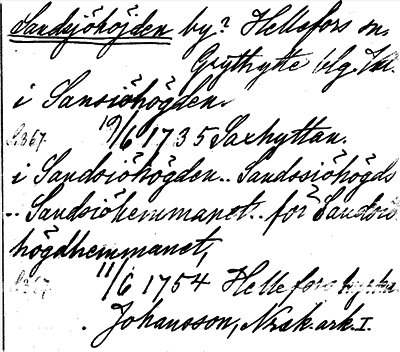 Sandsjöhöjden by? Hellefors sn,
Grythytte blg. Vsl.
i Sansiöhögden
s. 367. 19/6 1735 Saxhyttan.
i Sandsiöhögden.. Sandssiöhögds
.. Sandsiöhemmanet.. for Sandsiö
högdhemmanet,
s. 367 11/6 1754 Hellefors
Johansson, Närk. ark. I.